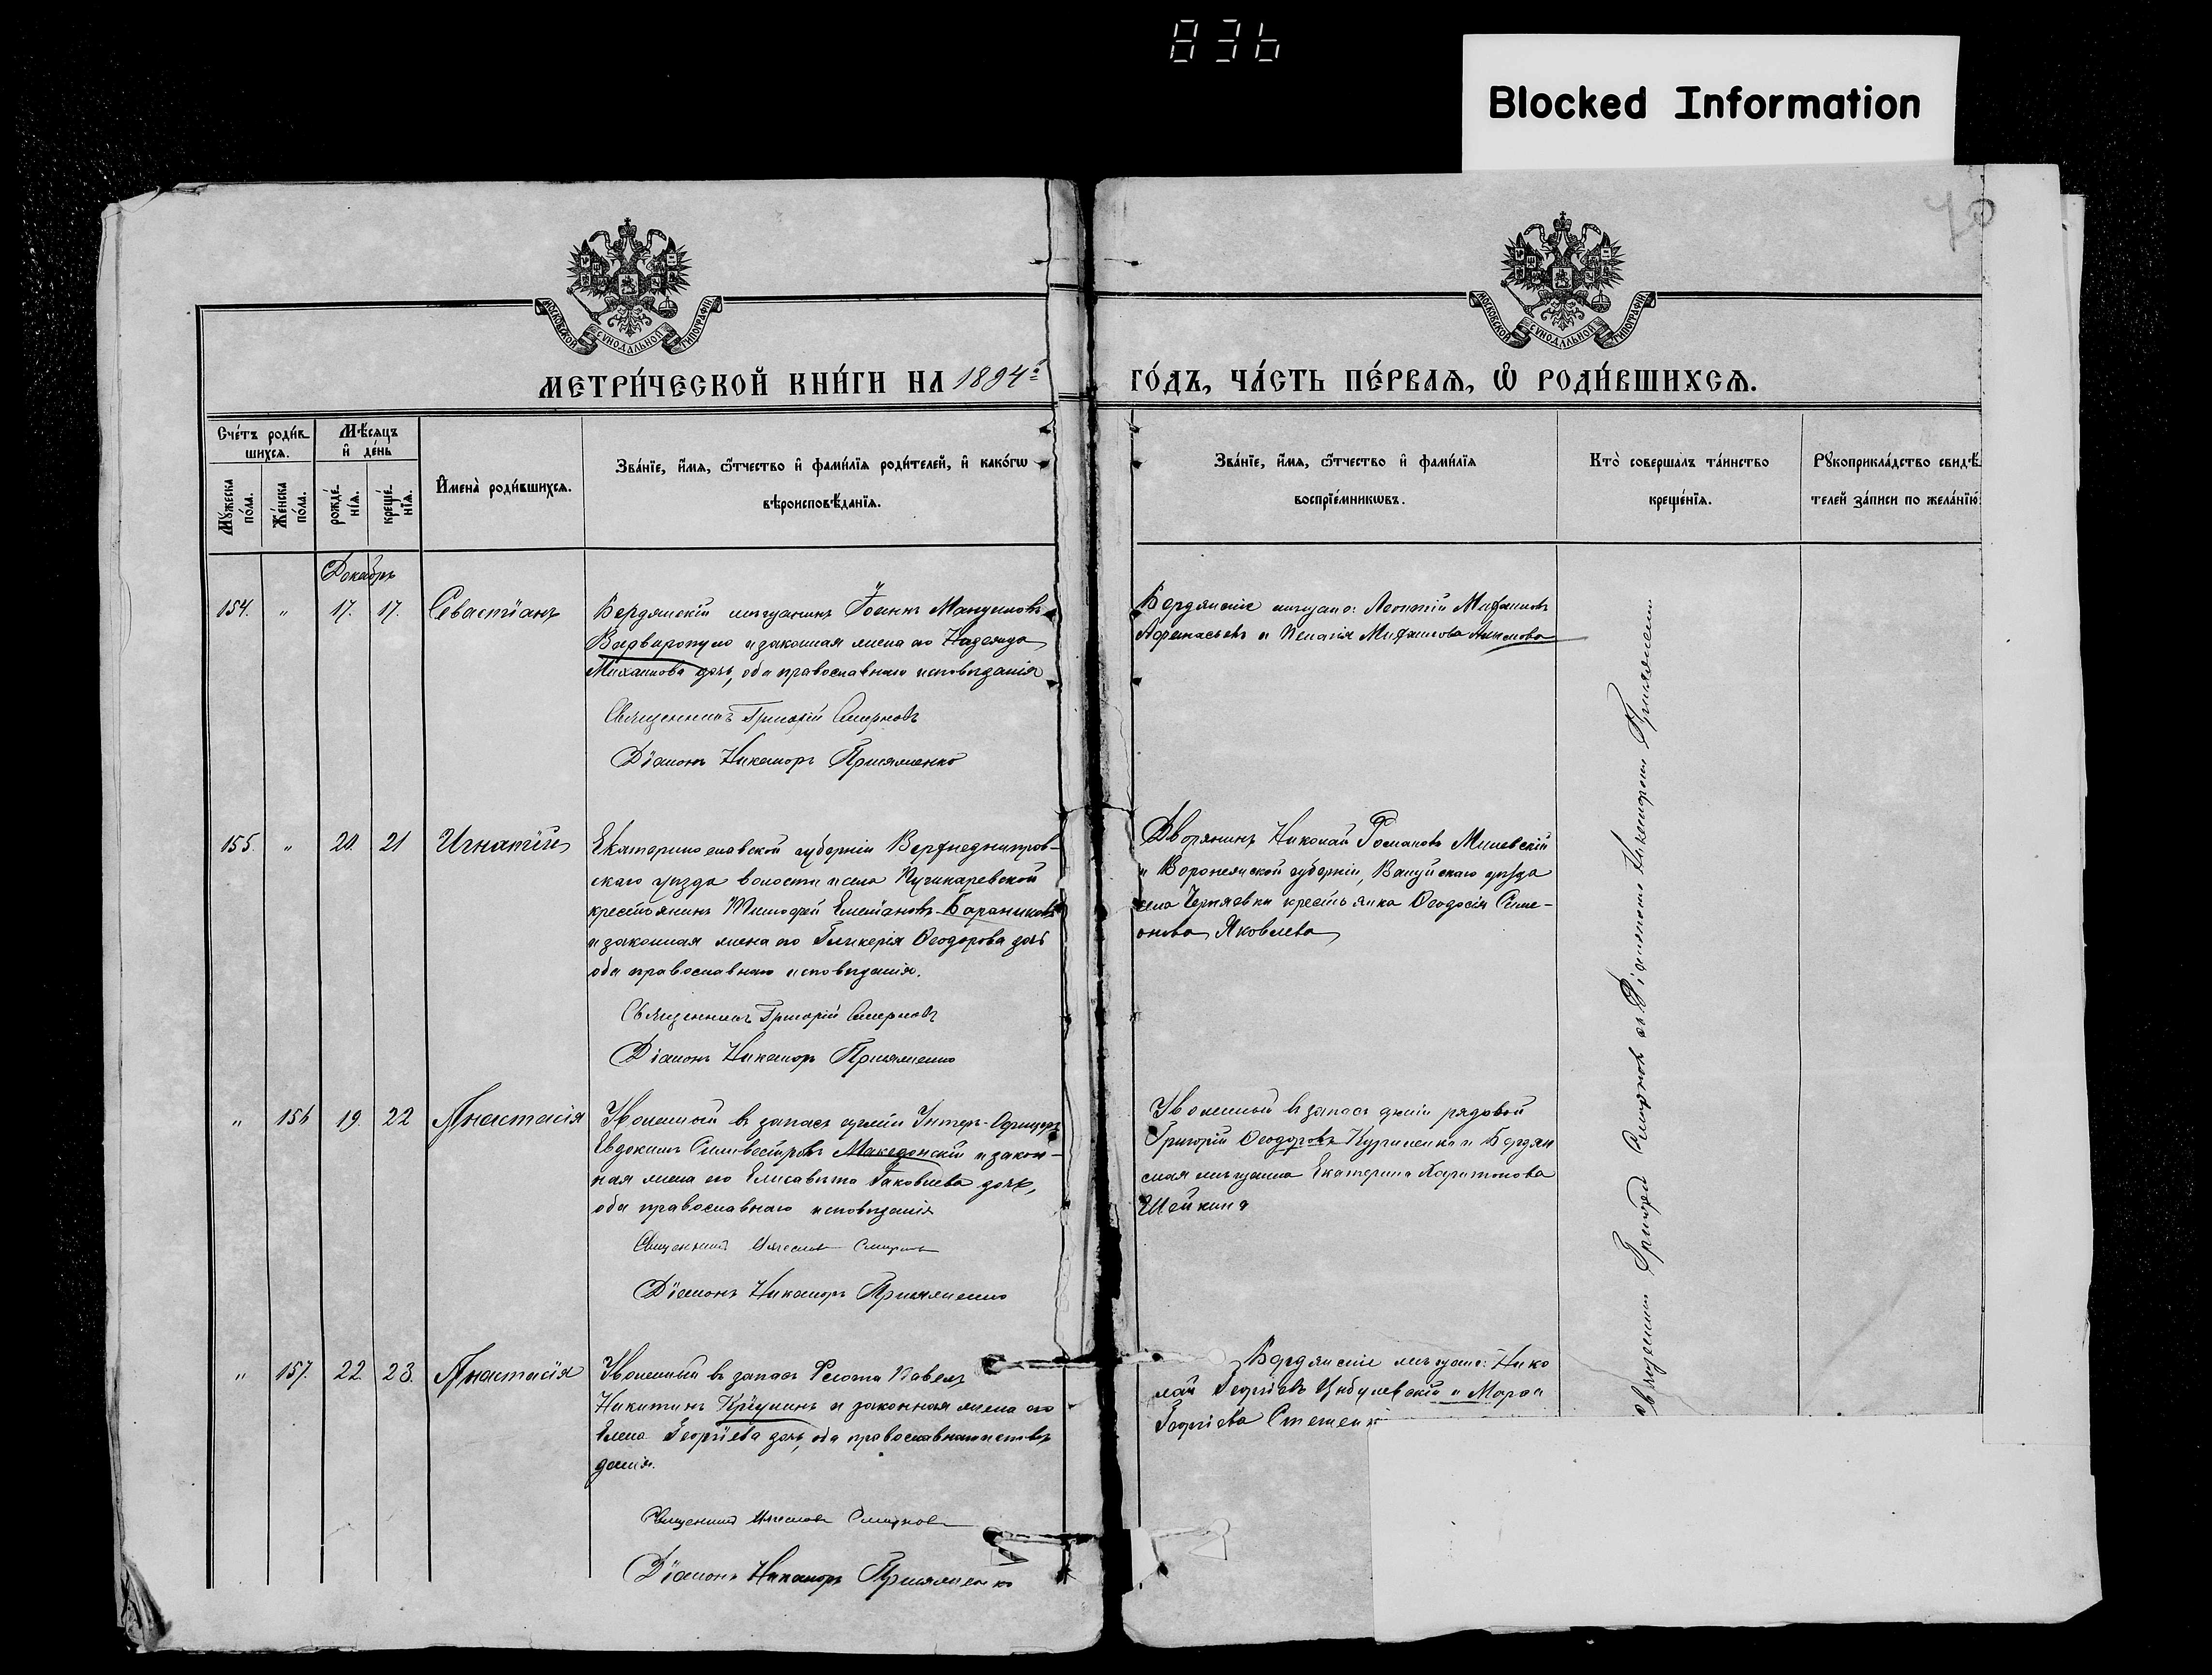 836
Blocked Information
70
МОСКОВСКОЙ СѴНОДАЛЬНОЙ ТИПОГРАФІИ
МОСКОВСКОЙ СѴНОДАЛЬНОЙ ТИПОГРАФІИ
МЕТРИ́ЧЕСКОЙ КНИ́ГИ НА 1894й
ГО́ДЪ, ЧА́СТЬ ПЕ́РВАѦ, Ѡ РОДИ́ВШИХСѦ.
Сче́тъ роди́в
шихсѧ.
Мꙋжеска
по́ла.
Же́нска
по́ла.
Мѣ́сѧцъ
и҆ де́нь
рожде́-
нїѧ.
креще́-
нїѧ.
И҆мена̀ роди́вшихсѧ.
Зва́нїе, и҆́мѧ, ѻ҆́тчество и҆ фами́лїѧ роди́телей, и҆ како́гѡ
вѣроисповѣ́данїѧ.
Зва́нїе, и҆́мѧ, ѻ҆́тчество и҆ фами́лїѧ
воспрїе́мникѡвъ.
Кто̀ соверша́лъ та́инство
креще́нїѧ.
Рꙋкоприкла́дство свидѣ́-
телей за́писи по жела́нїю
Декабрь
154. " 17. 17. Севастіанъ
Бердянскій мѣщанинъ Іоаннъ Мануиловъ
Варваропуло и законная жена его Надежда
Михаилова дочь, оба православнаго исповѣданія
Священникъ Григорій Смирновъ
Діаконъ Никаноръ Присяженко
Бердянскіе мѣщане: Леонтій Михаиловъ
Афанасьевъ и Пелагія Михаилова
155. " 20. 21 Игнатій
Екатеринославской губерніи Верхнеднѣпров-
скаго уѣзда волости и села Пушкаревской
крестьянинъ Тимофей Емеліановъ Бараниковъ
и законная жена его Гликерія Ѳеодорова дочь
оба православнаго исповѣданія.
Священникъ Григорій Смирновъ
Діаконъ Никаноръ Присяженко
Дворянинъ Николай Романовъ
и Воронежской губерніи, Валуйскаго уѣзда
села крестьянка Ѳеодосія Симе-
онова Яковлева
" 156 19. 22 Анастасія
Уволенный въ запасъ арміи Унтеръ-Офицеръ
Евдокимъ Силивестровъ Македонскій и закон-
ная жена его Елисавета Іаковлева дочь,
оба православнаго исповѣданія
Священникъ Смирновъ
Діаконъ Никаноръ Присяженко
Уволенный въ запасъ арміи рядовой
Григорій Ѳеодоровъ и Бердян
ская мѣщанка Екатерина Харитонова
Шейкина
" 157. 22. 23. Анастасія
Уволенный въ запасъ Флота Павелъ
Никитинъ и законная жена его
Елена Георгіева дочь, оба православнаго исповѣ
данія.
Священникъ Смирновъ
Діаконъ Никаноръ Присяженко
Бердянскіе мѣщане: Нико
лай Георгіевъ Цыбулевскій и Марѳа
Георгіева
Священникъ Григорій Смирновъ съ Діакономъ Никаноромъ Присяженкомъ